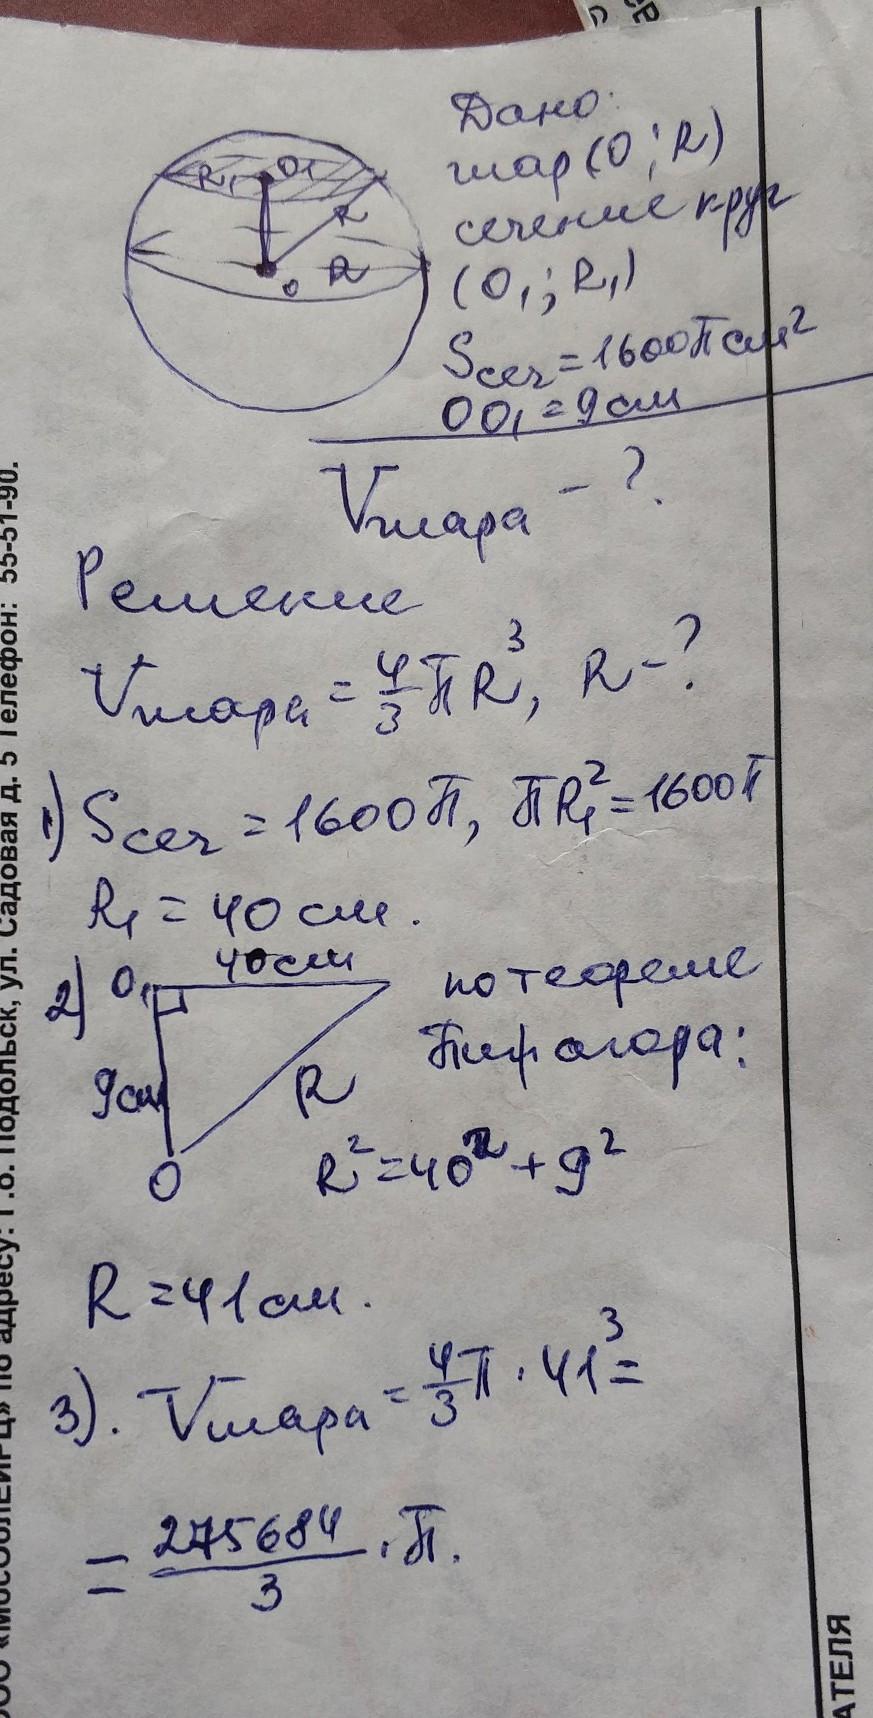 R₁ O₁
R
O R
Дано:
шар (O; R)
сечение круг
(O₁; R₁)
Sсеч = 1600π см²
OO₁ = 9 см
Vшара - ?
Решение
Vшара = 4/3 πR³, R - ?
1) Sсеч = 1600π, πR₁² = 1600π
R₁ = 40 см.
2) O₁ 40 см по теореме
Пифагора:
9 см R
O R² = 40² + 9²
R = 41 см.
3). Vшара = 4/3 π · 41³ =
= 275684/3 · π.
по адресу: Г.о. Подольск, ул. Садовая д. 5 Телефон: 55-51-90.
АТЕЛЯ